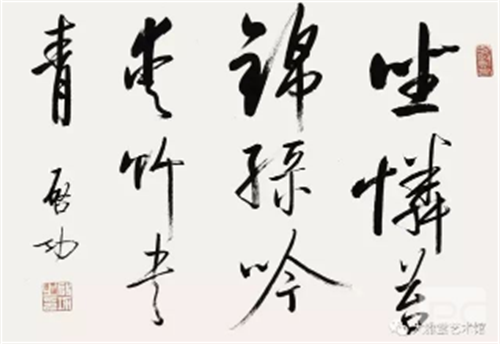 坐憐苔
錦綠吟
愛竹書
青
啓功
艺术馆